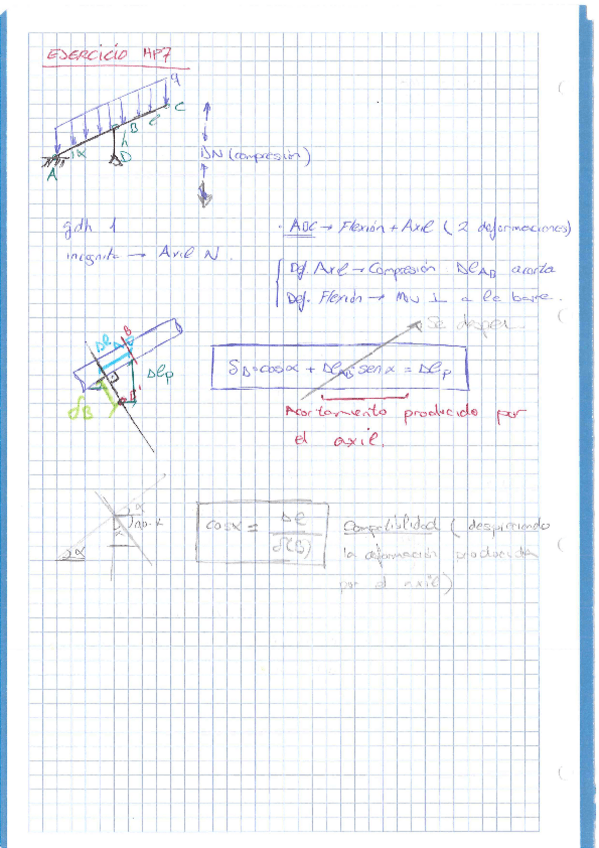 EJERCICIO HP7
q
C
B
α
h
D
A
ΔN (compresión)
gdh 1
incógnita → Axil N.
· ABC → Flexión + Axil (2 deformaciones)
Def. Axil → Compresión ΔℓAB acorta
Def. Flexión → Mov ⊥ a la barra.
Se despr.
ΔℓAB
B
Δℓp
δB
B'
δB·cosα + ΔℓAB·senα = Δℓp
Acortamiento producido por
el axil.
α
90-α
α
α
cosα = Δℓ / δ(B)
Compatibilidad (despreciando
la deformación producida
por el axil)